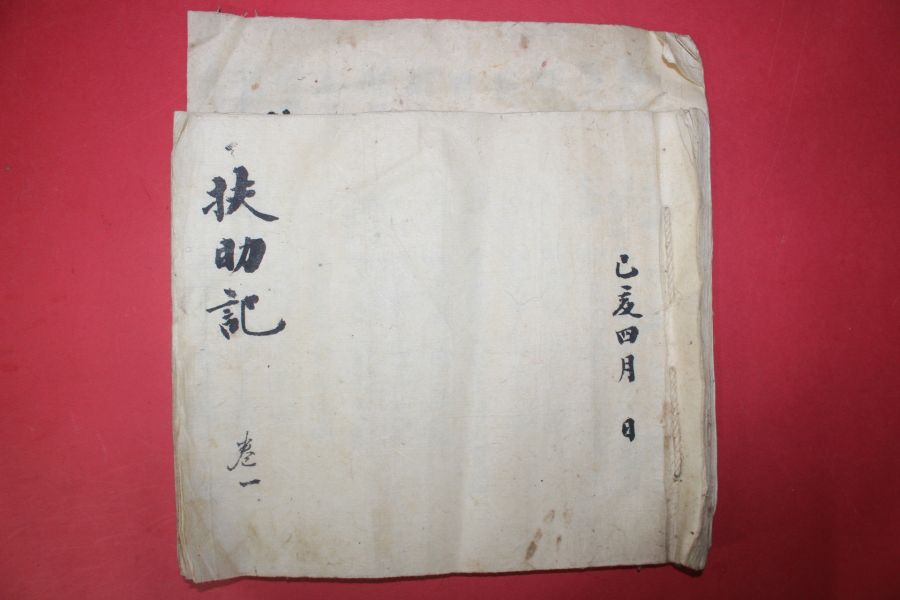 己亥四月 日
扶助記
卷一